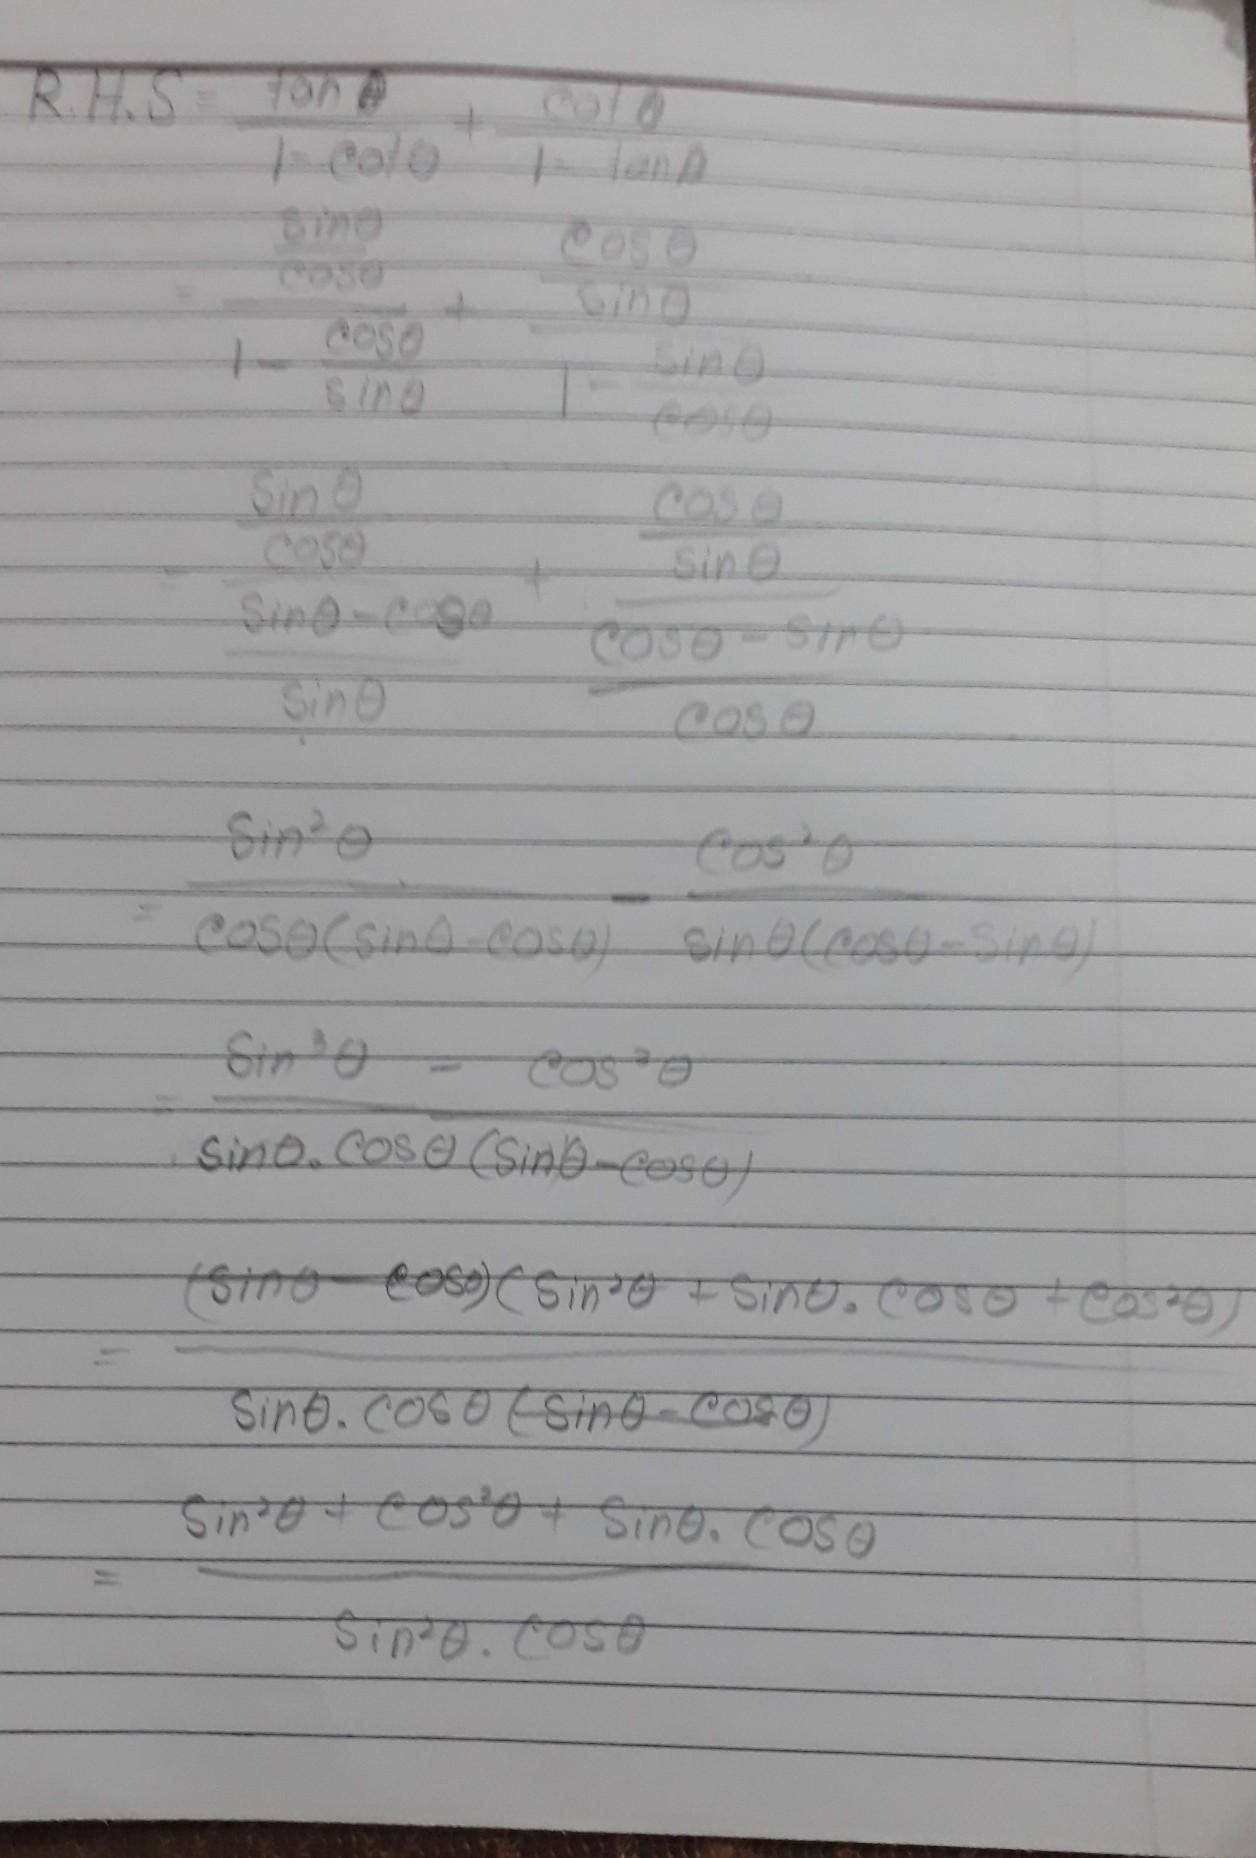 R.H.S = tan θ / 1 - cot θ + cot θ / 1 - tan θ
= sinθ/cosθ / 1 - cosθ/sinθ + cosθ/sinθ / 1 - sinθ/cosθ
= sinθ/cosθ / sinθ - cosθ/sinθ + cosθ/sinθ / cosθ - sinθ/cosθ
= sin²θ / cosθ(sinθ-cosθ) - cos²θ / sinθ(cosθ-sinθ)
= sin³θ - cos²θ / sinθ.cosθ(sinθ-cosθ)
= (sinθ - cosθ)(sin²θ + sinθ.cosθ + cos²θ) / sinθ.cosθ(sinθ-cosθ)
= sin²θ + cos²θ + sinθ.cosθ / sin²θ.cosθ